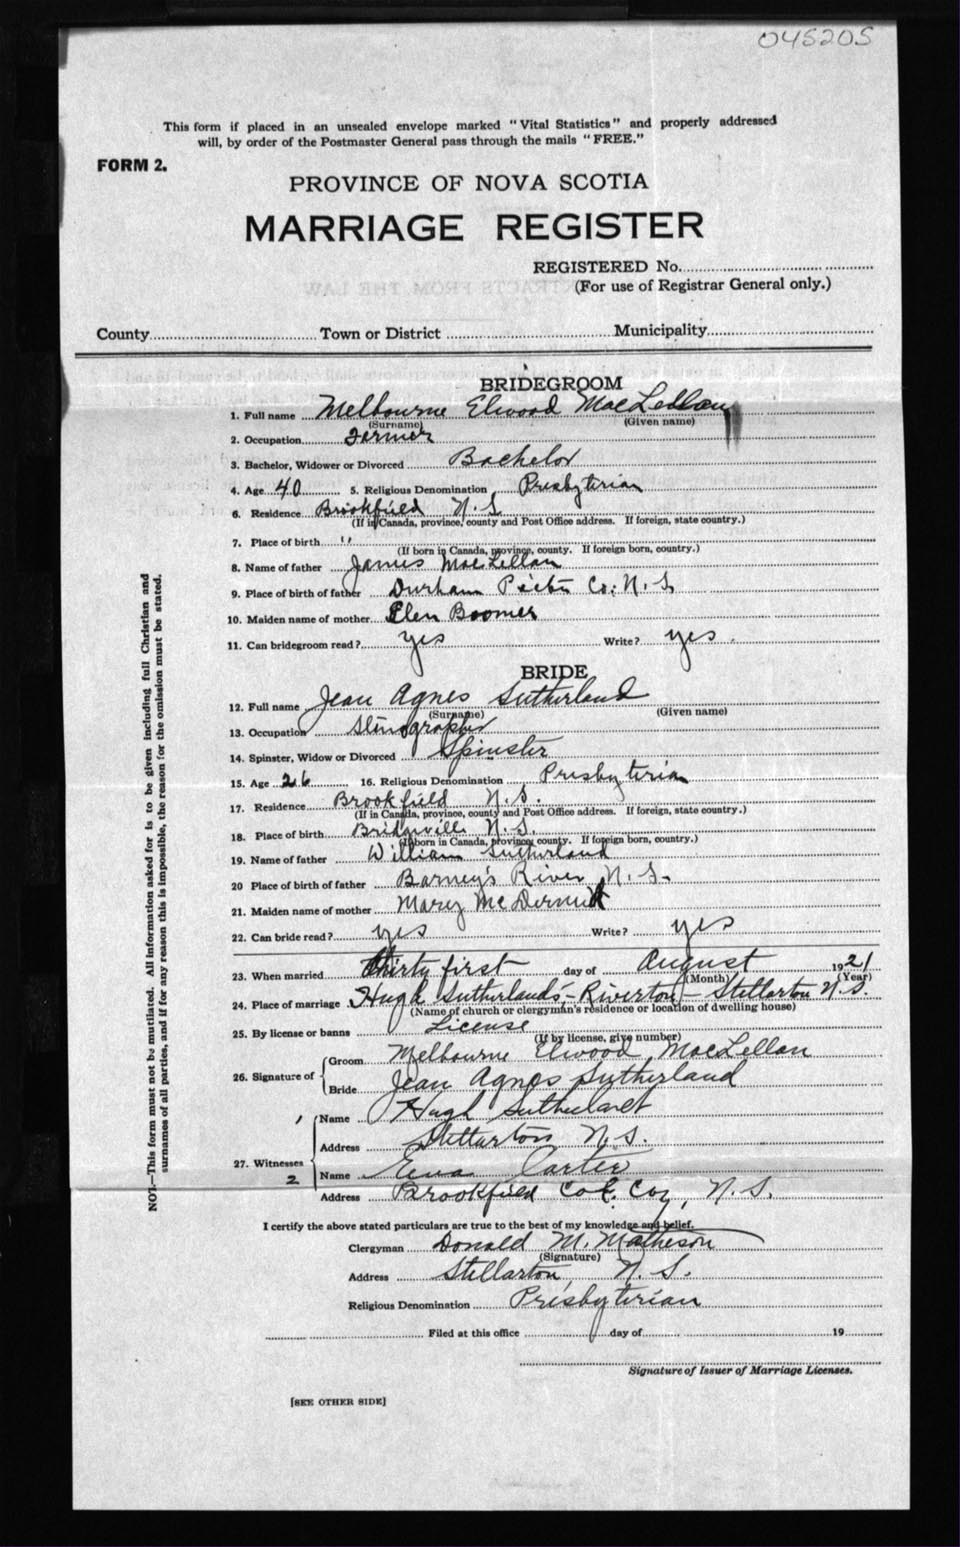 045205
This form if placed in an unsealed envelope marked "Vital Statistics" and properly addressed
will, by order of the Postmaster General pass through the mails "FREE."
FORM 2.
PROVINCE OF NOVA SCOTIA
MARRIAGE REGISTER
REGISTERED No.
(For use of Registrar General only.)
County Town or District Municipality
BRIDEGROOM
1. Full name Melbourne Elwood MacLellan
(Surname) (Given name)
2. Occupation Farmer
3. Bachelor, Widower or Divorced Bachelor
4. Age 40 5. Religious Denomination Presbyterian
6. Residence Brookfield N.S.
(If in Canada, province, county and Post Office address. If foreign, state country.)
7. Place of birth "
(If born in Canada, province, county. If foreign born, country.)
8. Name of father James MacLellan
9. Place of birth of father Durham Pictou Co. N.S.
10. Maiden name of mother Elen Boomer
11. Can bridegroom read? yes Write? yes.
BRIDE
12. Full name Jean Agnes Sutherland
(Surname) (Given name)
13. Occupation Stenographer
14. Spinster, Widow or Divorced Spinster
15. Age 26 16. Religious Denomination Presbyterian
17. Residence Brookfield N.S.
(If in Canada, province, county and Post Office address. If foreign, state country.)
18. Place of birth Bridgeville N.S.
(If born in Canada, province, county. If foreign born, country.)
19. Name of father William Sutherland
20 Place of birth of father Barney's River N.S.
21. Maiden name of mother Mary McDermid
22. Can bride read? yes Write? yes
23. When married Thirty first day of August 1921
(Month) (Year)
24. Place of marriage Hugh Sutherland's - Riverton - Stellarton N.S.
(Name of church or clergyman's residence or location of dwelling house)
25. By license or banns License
(If by license, give number)
26. Signature of Groom Melbourne Elwood MacLellan
Bride Jean Agnes Sutherland
27. Witnesses
1 Name Hugh Sutherland
Address Stellarton N.S.
2 Name Carter
Address Brookfield Col. Co., N.S.
I certify the above stated particulars are true to the best of my knowledge and belief.
Clergyman Donald M. Matheson
(Signature)
Address Stellarton, N.S.
Religious Denomination Presbyterian
Filed at this office day of 19
Signature of Issuer of Marriage Licenses.
[SEE OTHER SIDE]
NOT.—This form must not be mutilated. All information asked for is to be given including full Christian and
surnames of all parties, and if for any reason this is impossible, the reason for the omission must be stated.